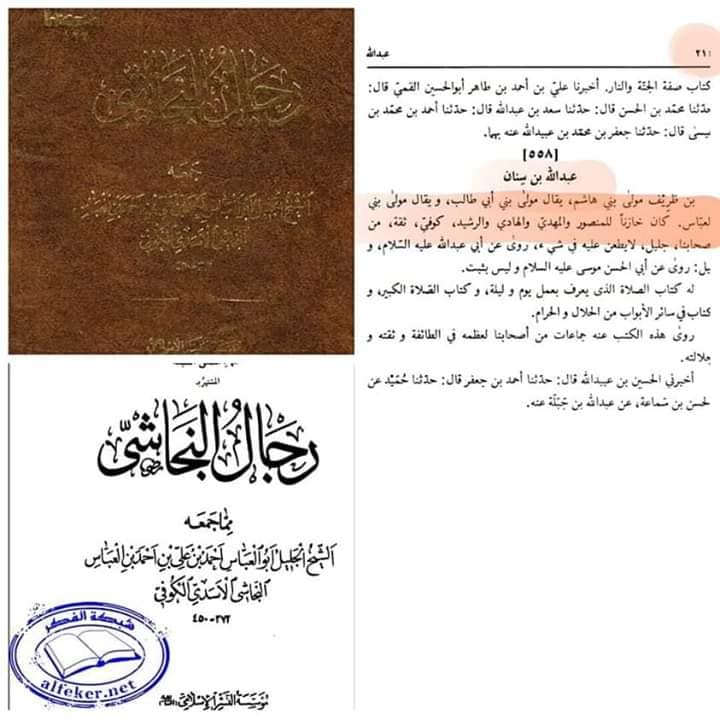 رجال النجاشي
رِجَالُ النَّجَاشِيّ
مِمّا جَمَعَه
الشيخ الجليل أبو العباس أحمد بن علي بن أحمد بن العباس
النجاشي الأسدي الكوفي
٣٧٢-٤٥٠
مؤسسة النشر الإسلامي
شبكة الفكر
alfeker.net
٢١
عبدالله
كتاب صفة الجنّة والنار. أخبرنا عليّ بن أحمد بن طاهر أبوالحسين القمّيّ قال:
حدّثنا محمّد بن الحسن قال: حدّثنا سعد بن عبدالله قال: حدّثنا أحمد بن محمّد بن
عيسى قال: حدّثنا جعفر بن محمّد بن عبيدالله عنه بهما.
[٥٥٨]
عبدالله بن سِنان
بن طَريْف مولىٰ بني هاشم، يقال مولىٰ بني أبي طالب، و يقال مولىٰ بني
لعبّاس. كان خازناً للمنصور والمهديّ والهادي والرشيد، كوفيّ، ثقة، من
صحابنا، جليل، لايطعن عليه في شيء، روىٰ عن أبي عبدالله عليه السّلام، و
يل: روىٰ عن أبي الحسن موسى عليه السلام و ليس بثبت.
له كتاب الصلاة الذى يعرف بعمل يوم و ليلة، و كتاب الصّلاة الكبير، و
كتاب في سائر الأبواب من الحلال و الحرام.
روىٰ هذه الكتب عنه جماعات من أصحابنا لعظمه في الطائفة و ثقته و
جلالته.
أخبرني الحسين بن عبيدالله قال: حدّثنا أحمد بن جعفر قال: حدّثنا حُمَيْد عن
لحسن بن سَماعة، عن عبدالله بن جَبَلَة عنه.